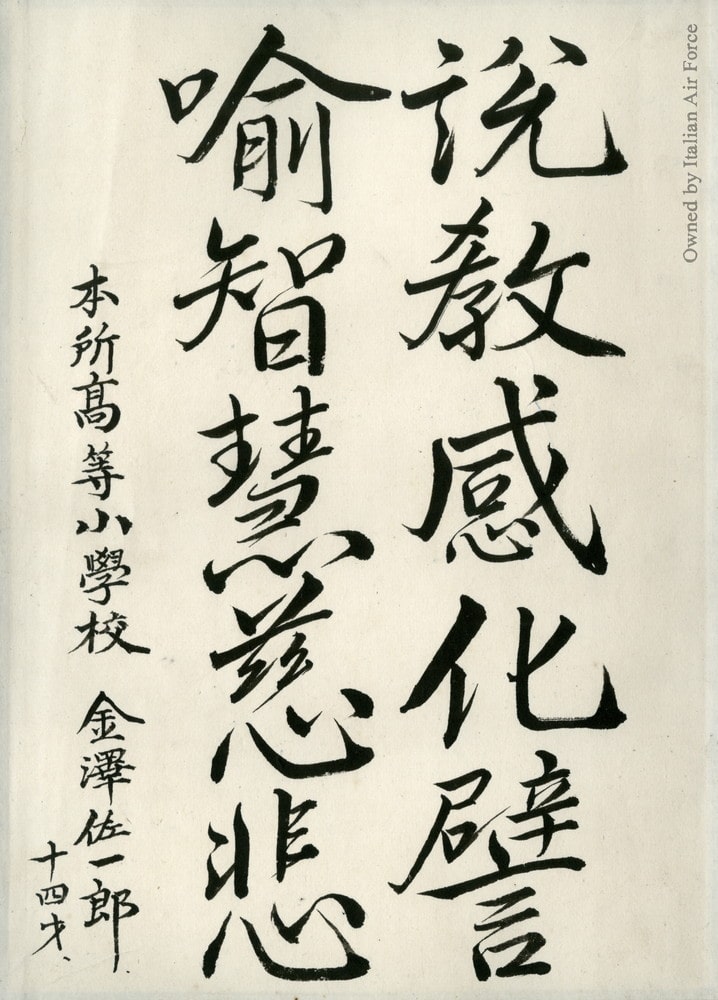 說教感化譬
喻智慧慈悲
本所髙等小學校 金澤佐一郎
十四才、
Owned by Italian Air Force